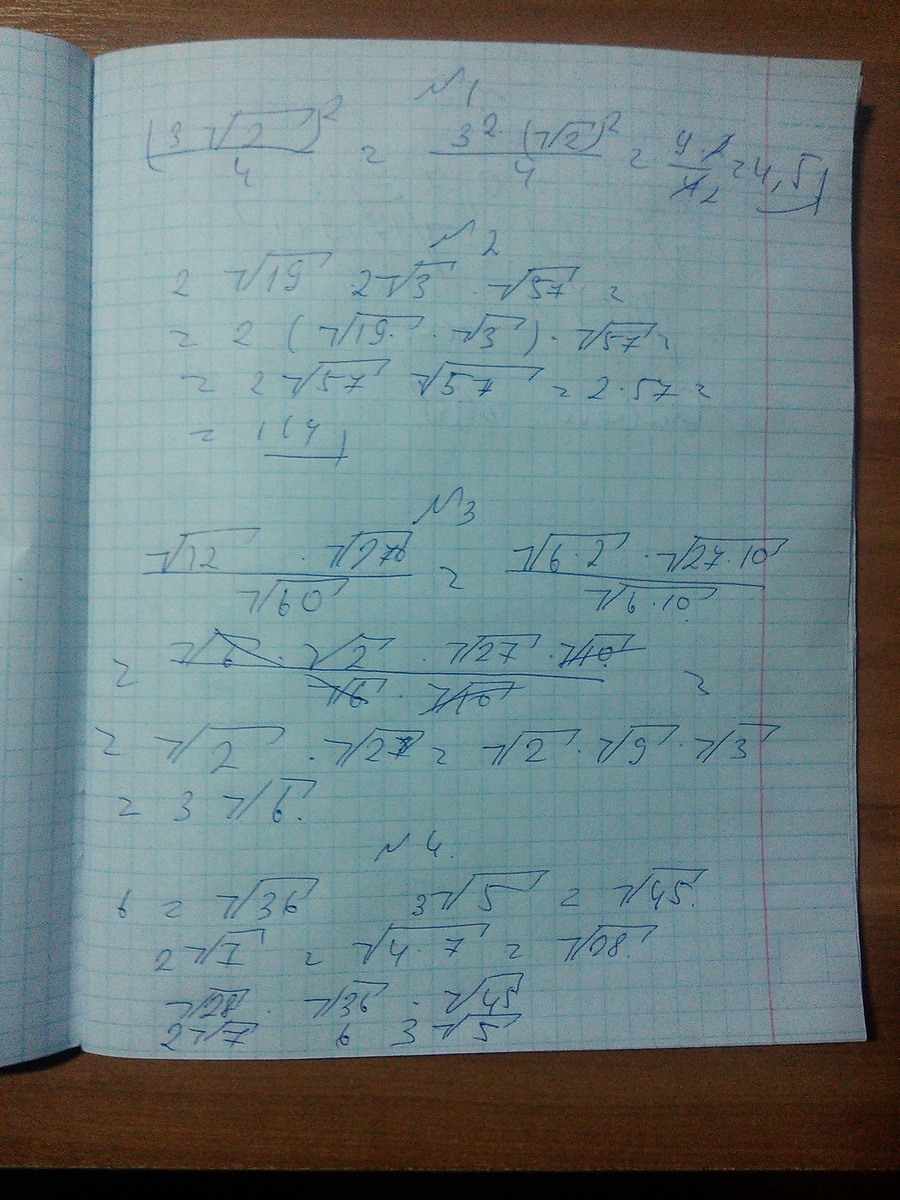 №1
(3√2)²/4 = 3²·(√2)²/4 = 9·2/4 2 = 4,5
№2
2 √19 · 2√3 · √57 =
= 2 (√19 · √3) · √57 =
= 2√57 √57 = 2·57 =
= 114
№3
√12 · √270/√60 = √6·2 · √27·10/√6·10
= √6 · √2 · √27 · √10/√6 · √10 =
= √2 · √27 = √2 · √9 · √3
= 3 √6.
№4.
6 = √36 3√5 = √45.
2√7 = √4·7 = √28.
√28 · √36 · √45
2√7 6 3√5